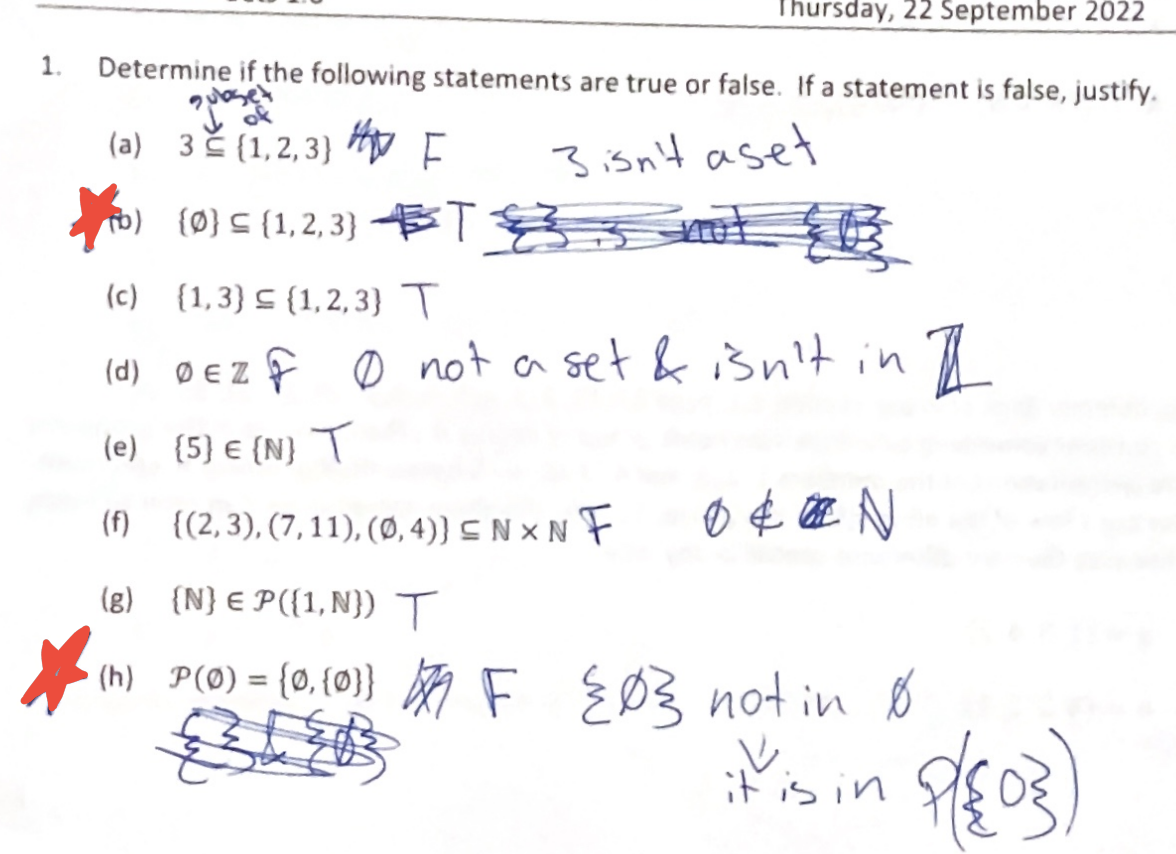 Thursday, 22 September 2022
1. Determine if the following statements are true or false. If a statement is false, justify.
subset
ok
(a) 3 ⊆ {1, 2, 3} F 3 isn't a set
(b) {∅} ⊆ {1, 2, 3} T not {∅}
(c) {1, 3} ⊆ {1, 2, 3} T
(d) ∅ ∈ ℤ F ∅ not a set & isn't in ℤ
(e) {5} ∈ {ℕ} T
(f) {(2, 3), (7, 11), (∅, 4)} ⊆ ℕ × ℕ F ∅ ∉ ℕ
(g) {ℕ} ∈ 𝒫({1, ℕ}) T
(h) 𝒫(∅) = {∅, {∅}} F {∅} not in ∅
it is in P({∅})